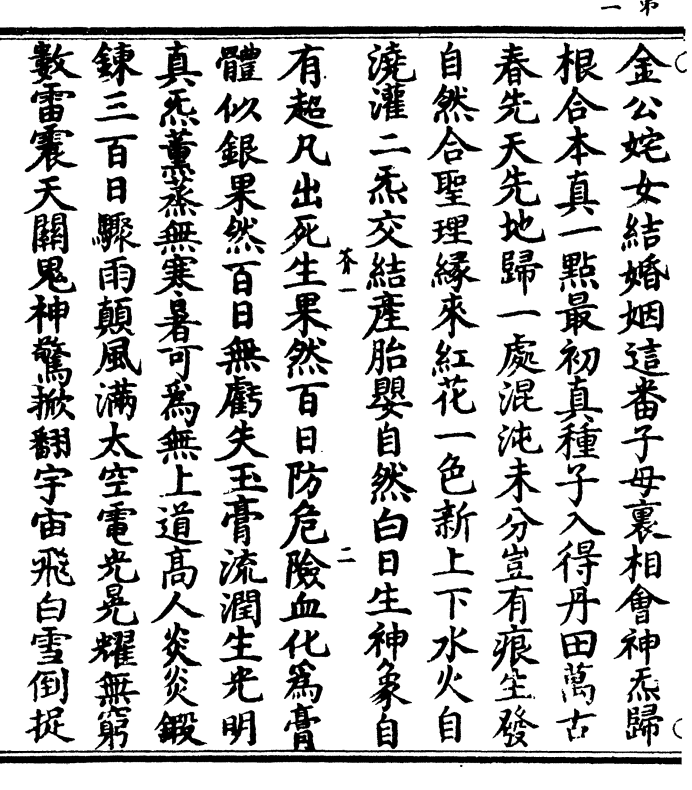 第一
金公姹女結婚姻這番子母裏相會神炁歸
根合本真一點最初真種子入得丹田萬古
春先天先地歸一處混沌未分豈有痕發
自然合聖理緣來紅花一色新上下水火自
澆灌二炁交結產胎嬰自然白日生神象自
芥一 二
有超凡出死生果然百日防危險血化爲膏
體似銀果然百日無虧失玉膏流潤生光明
真炁薰蒸無寒暑可爲無上道高人炎炎鍛
鍊三百日驟雨顛風滿太空電光晃耀無窮
數雷震天關鬼神驚掀翻宇宙飛白雪倒捉